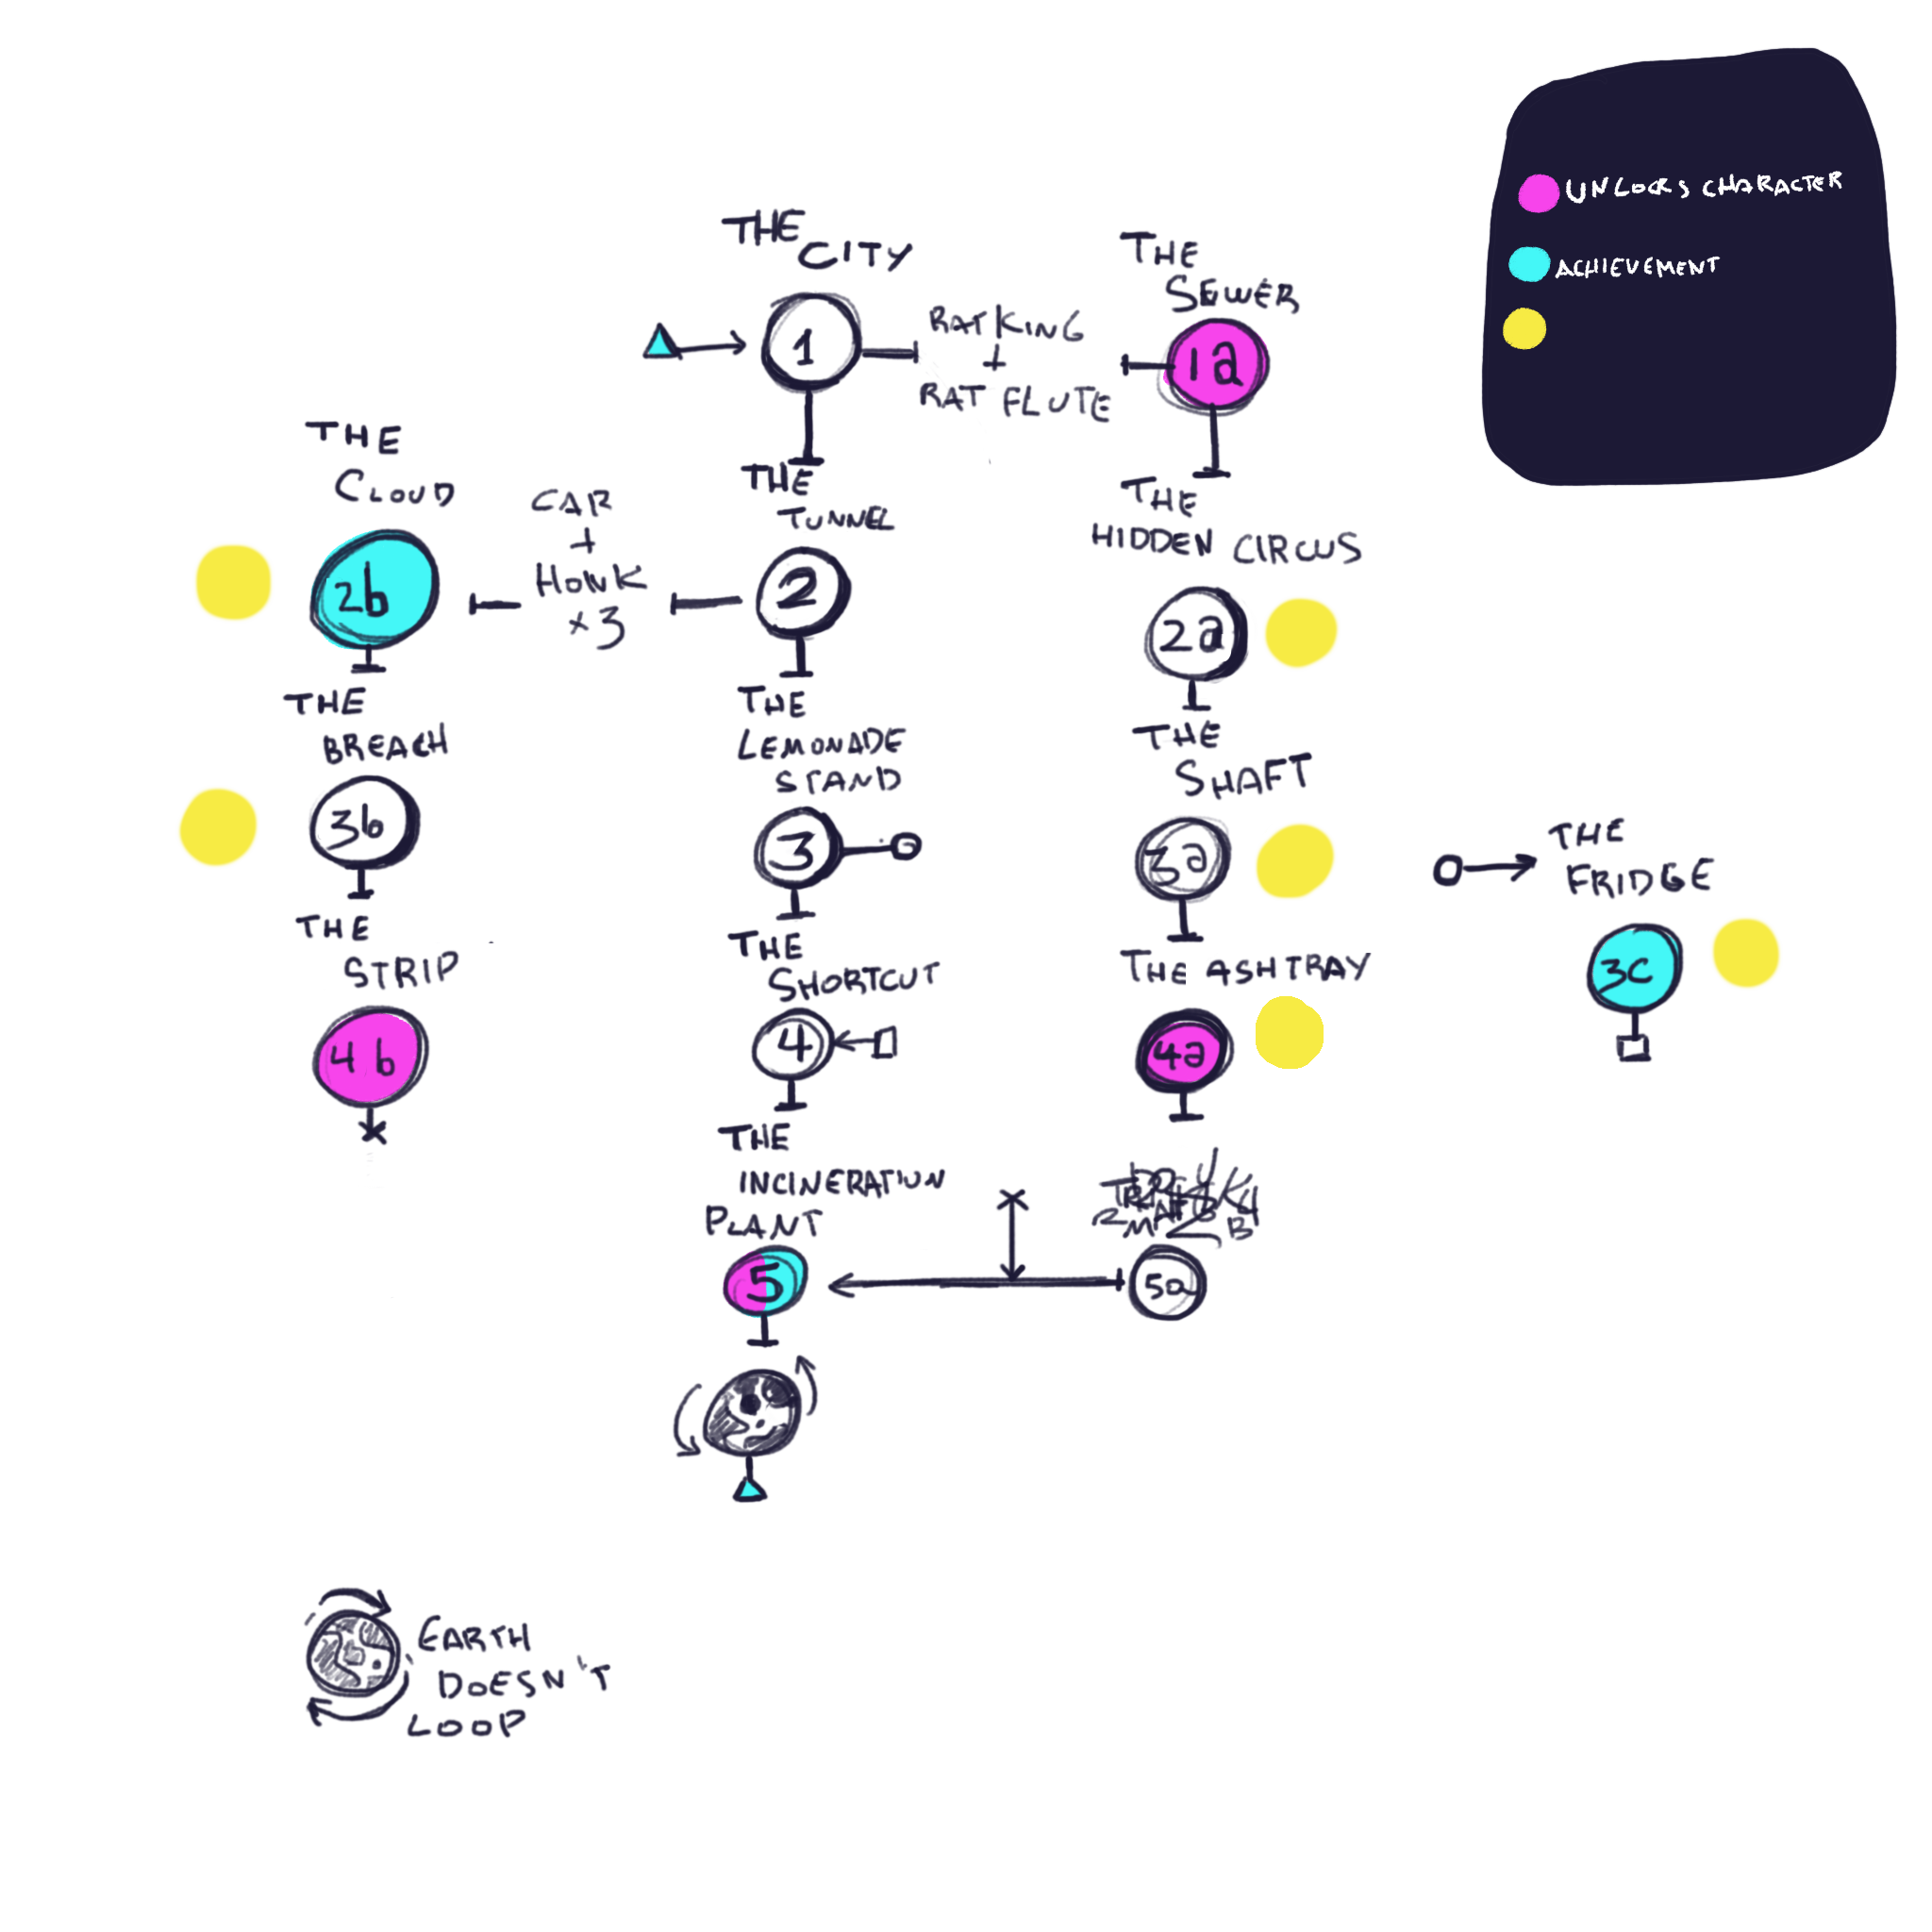 UNLOCKS CHARACTER
ACHIEVEMENT
THE
CITY
1
RAT KING
+
RAT FLUTE
THE
SEWER
1a
THE
CLOUD
2b
CAR
+
HONK
x3
THE
TUNNEL
2
THE
HIDDEN CIRCUS
2a
THE
BREACH
3b
THE
LEMONADE
STAND
3
THE
SHAFT
3a
THE
FRIDGE
3C
THE
STRIP
4b
THE
SHORTCUT
4
THE ASHTRAY
4a
THE
INCINERATION
PLANT
5
5a
EARTH
DOESN'T
LOOP